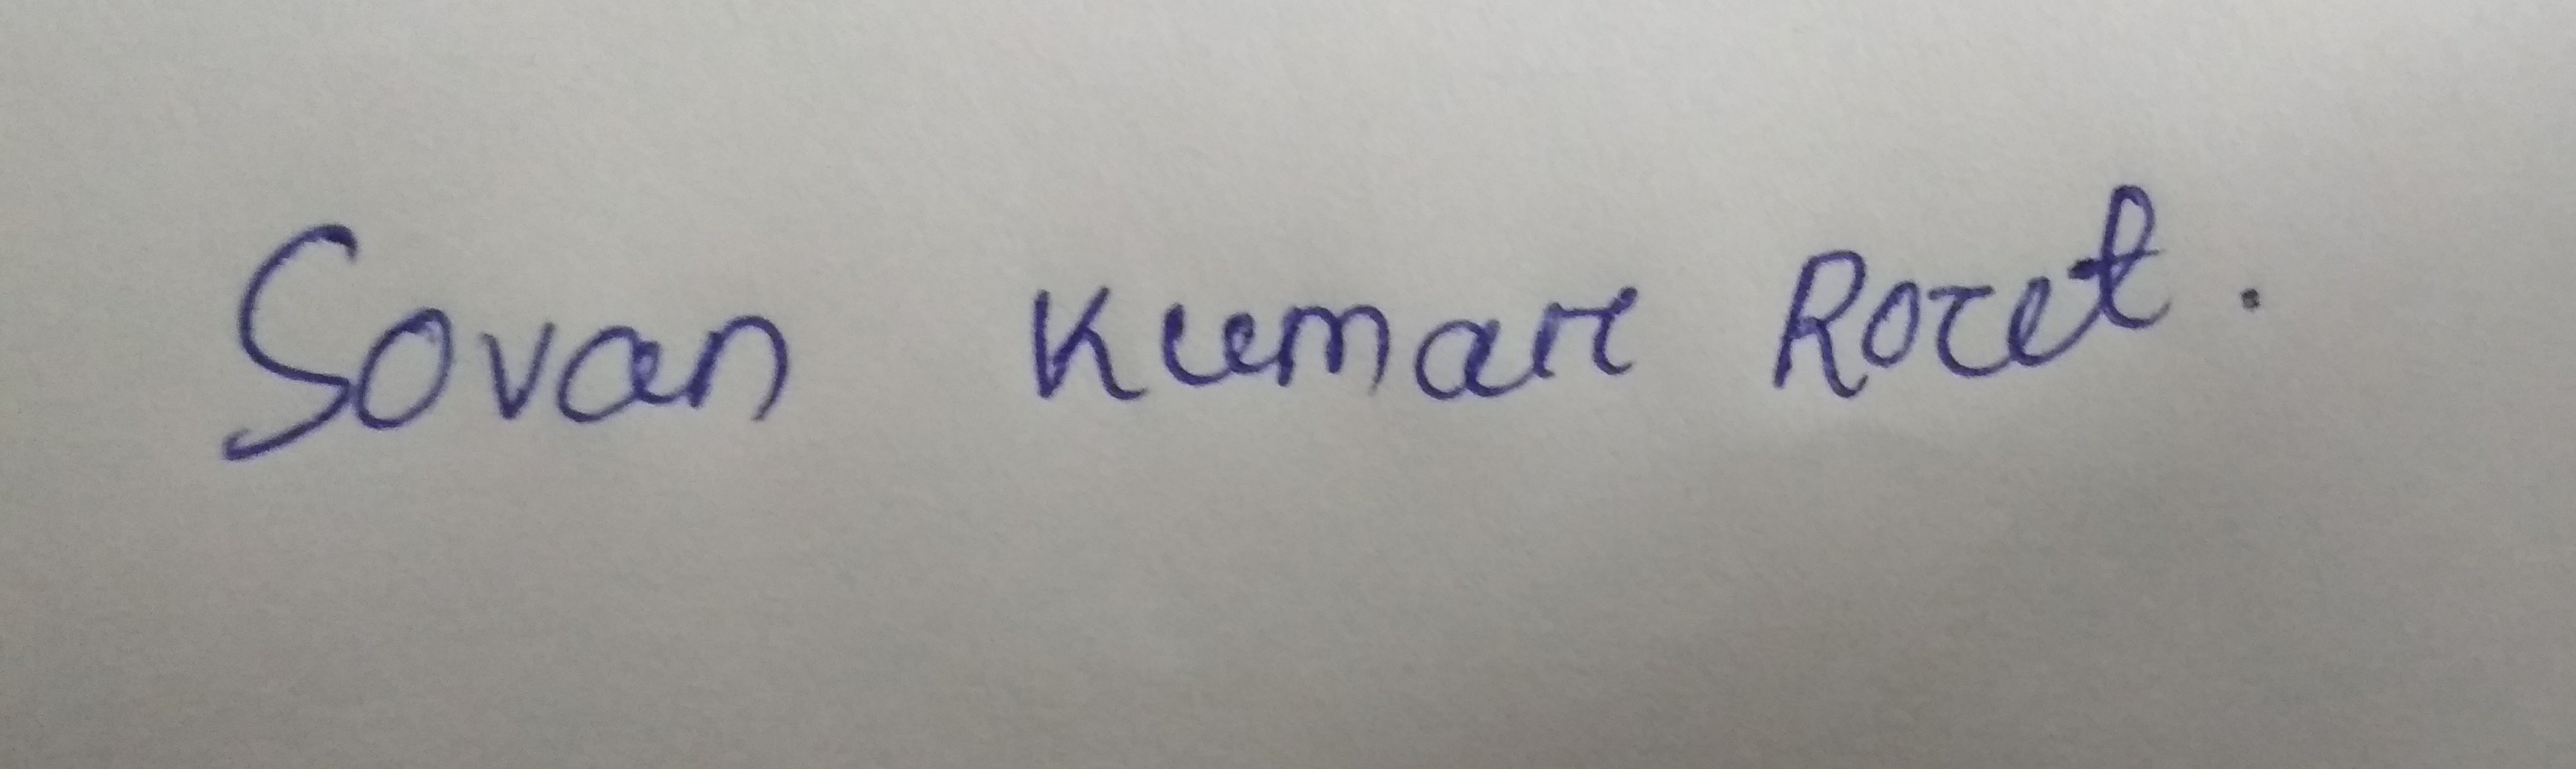 Sovan Kumar Rout.